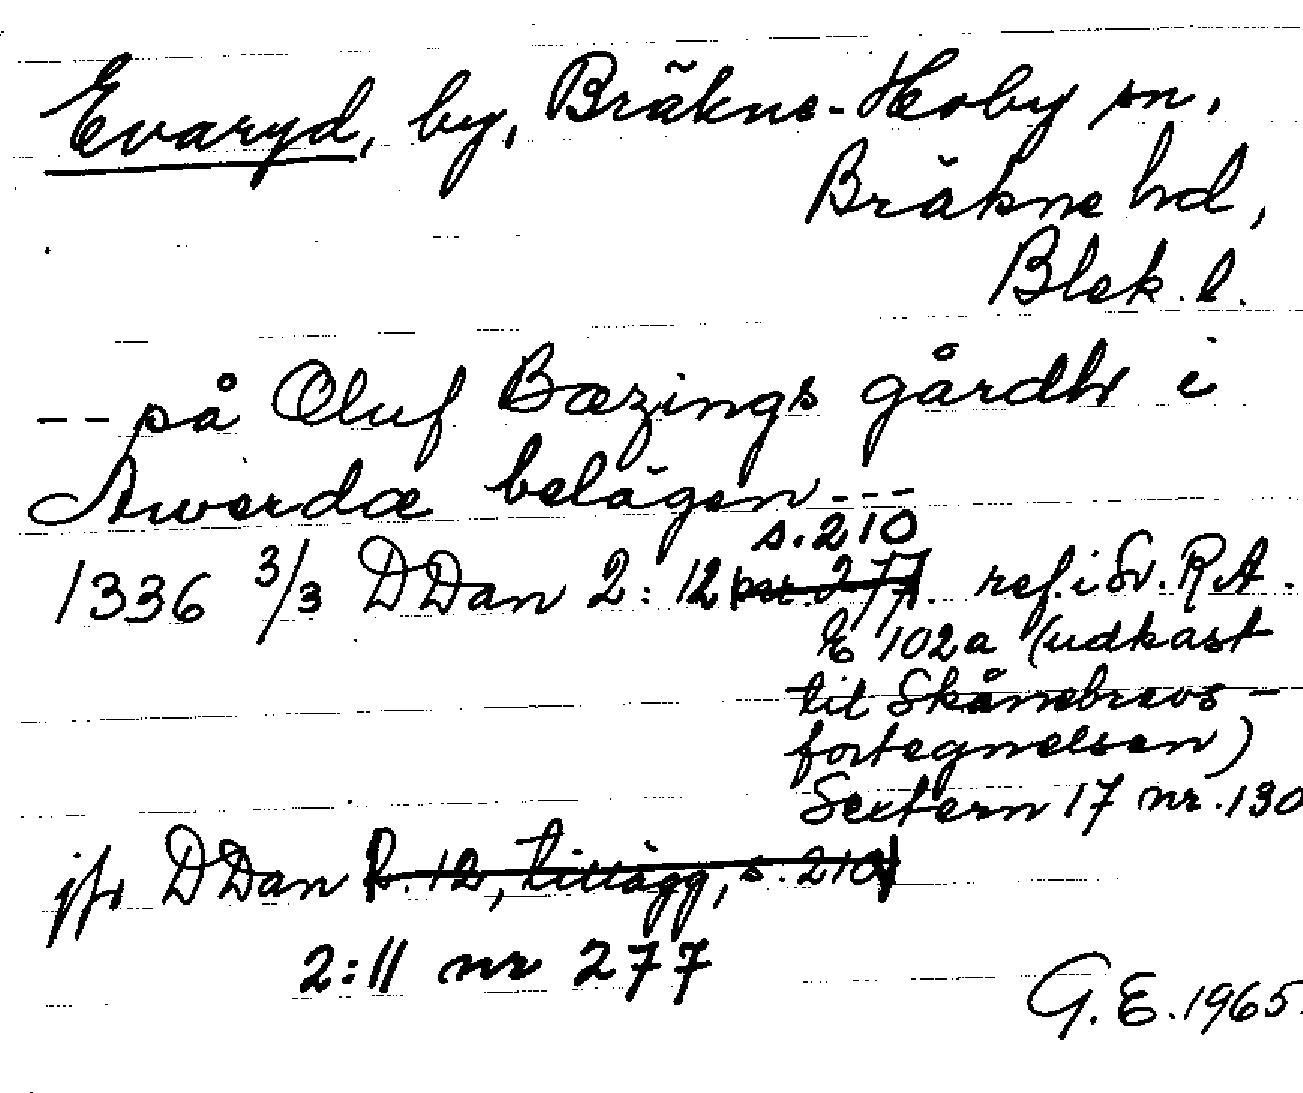 Evaryd, by, Bräkne-Hoby sn,
Bräkne hd,
Blek. l.
-- på Oluf Bæzings gårdh i
Awerdæ belägen ---
s. 210
1336 3/3 DDan 2: 12 nr. 277. ref. i Sv. R.A.
E 102a (udkast
til Skånebrevs-
fortegnelsen)
Sextern 17 nr. 130
jfr DDan R. 12, tillägg, s. 210
2:11 nr 277
G. E. 1965.